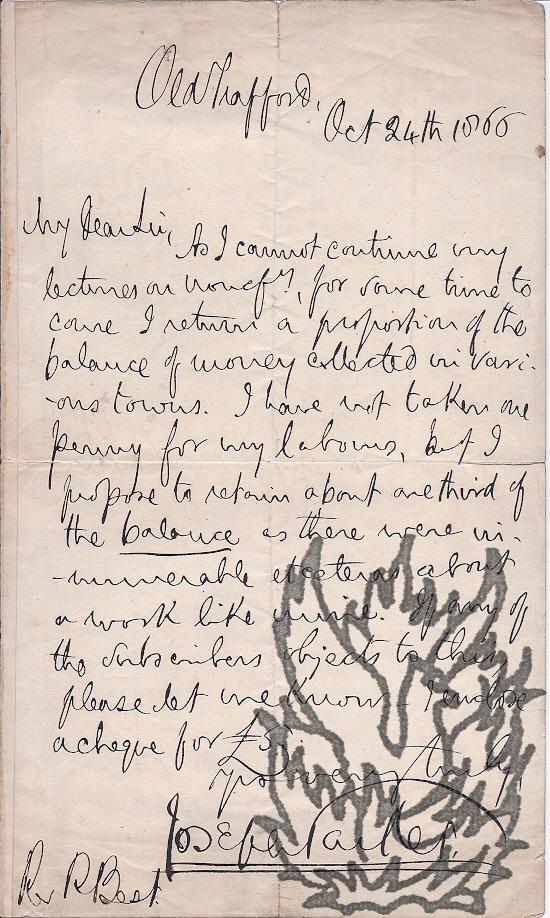 Old Trafford,
Oct 24th 1866
My Dear Sir,
As I cannot continue my
lectures on nonconfy, for some time to
come I return a proportion of the
balance of money collected in vari-
-ous towns. I have not taken one
penny for my labours, but I
propose to retain about one third of
the balance as there were in-
-numerable etceteras about
a work like mine. If any of
the subscribers objects to this,
please let me know. I enclose
a cheque for £5.
yrs very truly,
Joseph Parker.
Rev R Best.